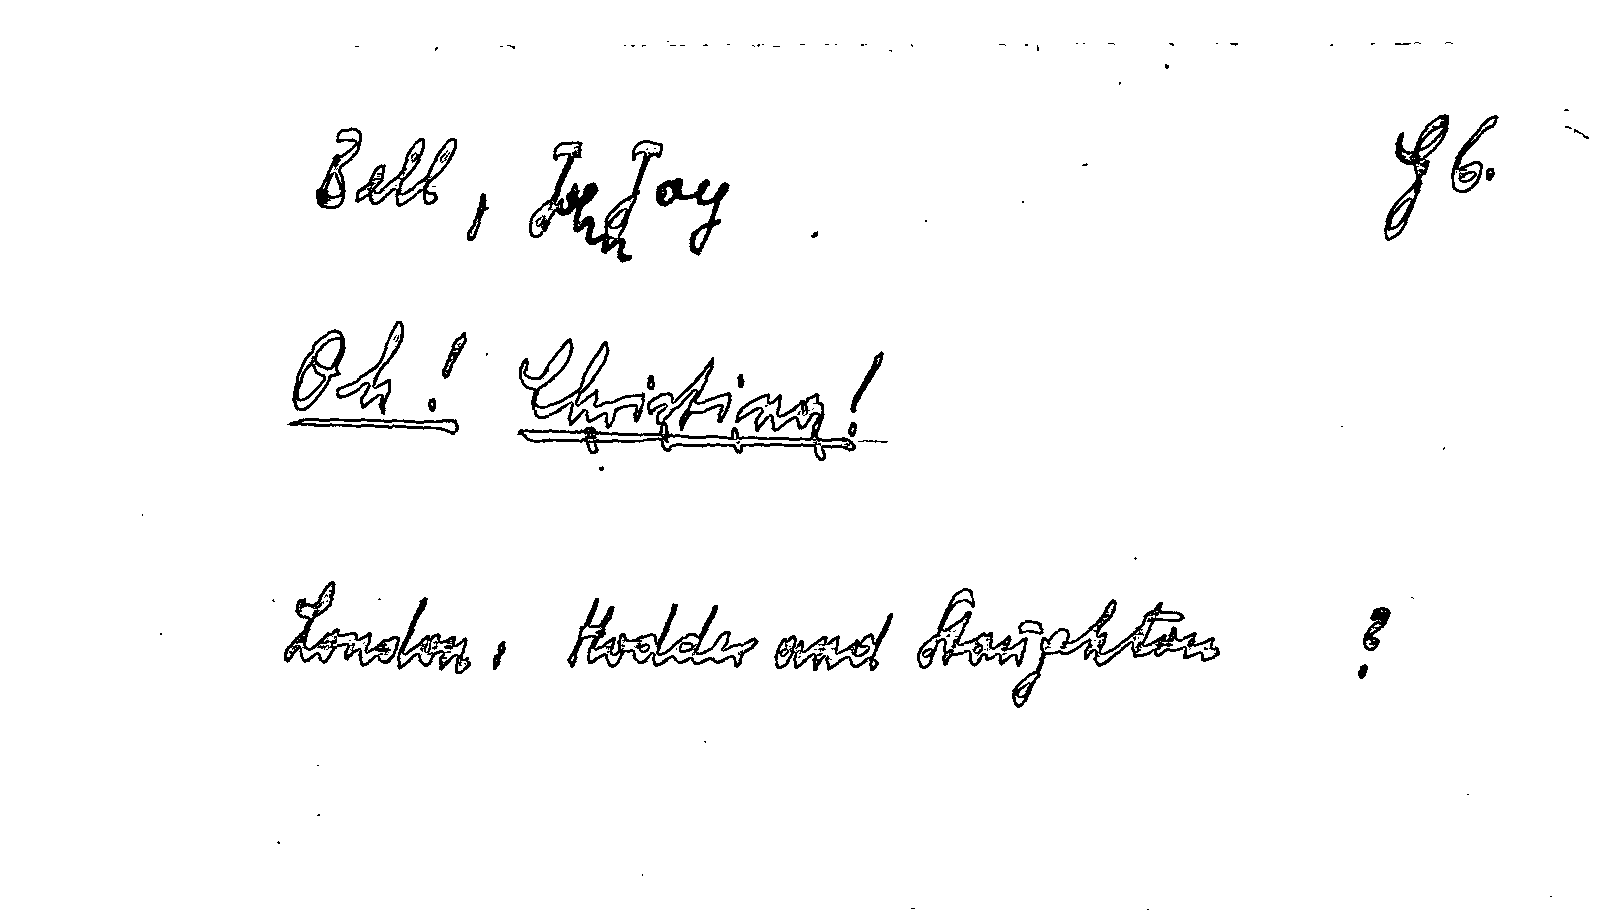 Bell, John Joy. G6.
Oh! Christina!
London, Hodder and Stoughton ?